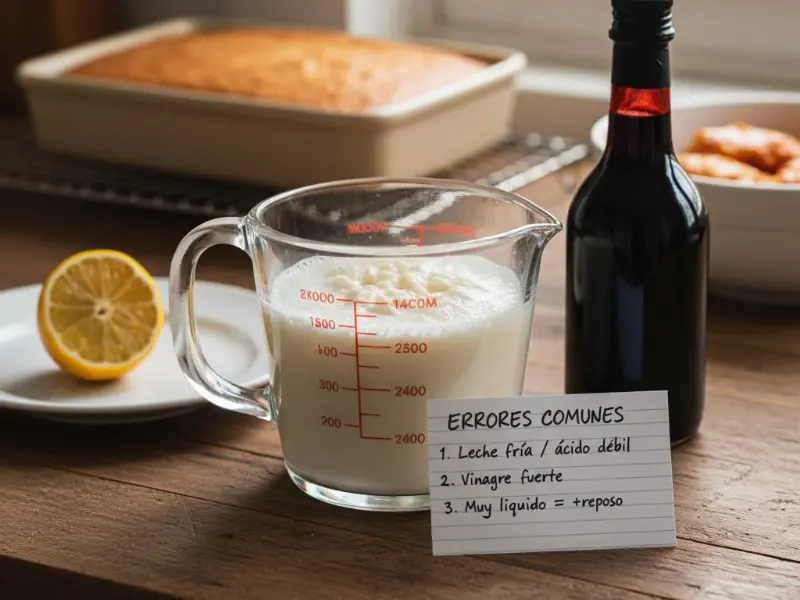 2X000 14COM
1800
2500
100
300 2400
200
2400
ERRORES COMUNES
1. Leche fría / ácido débil
2. Vinagre fuerte
3. Muy liquido = +reposo